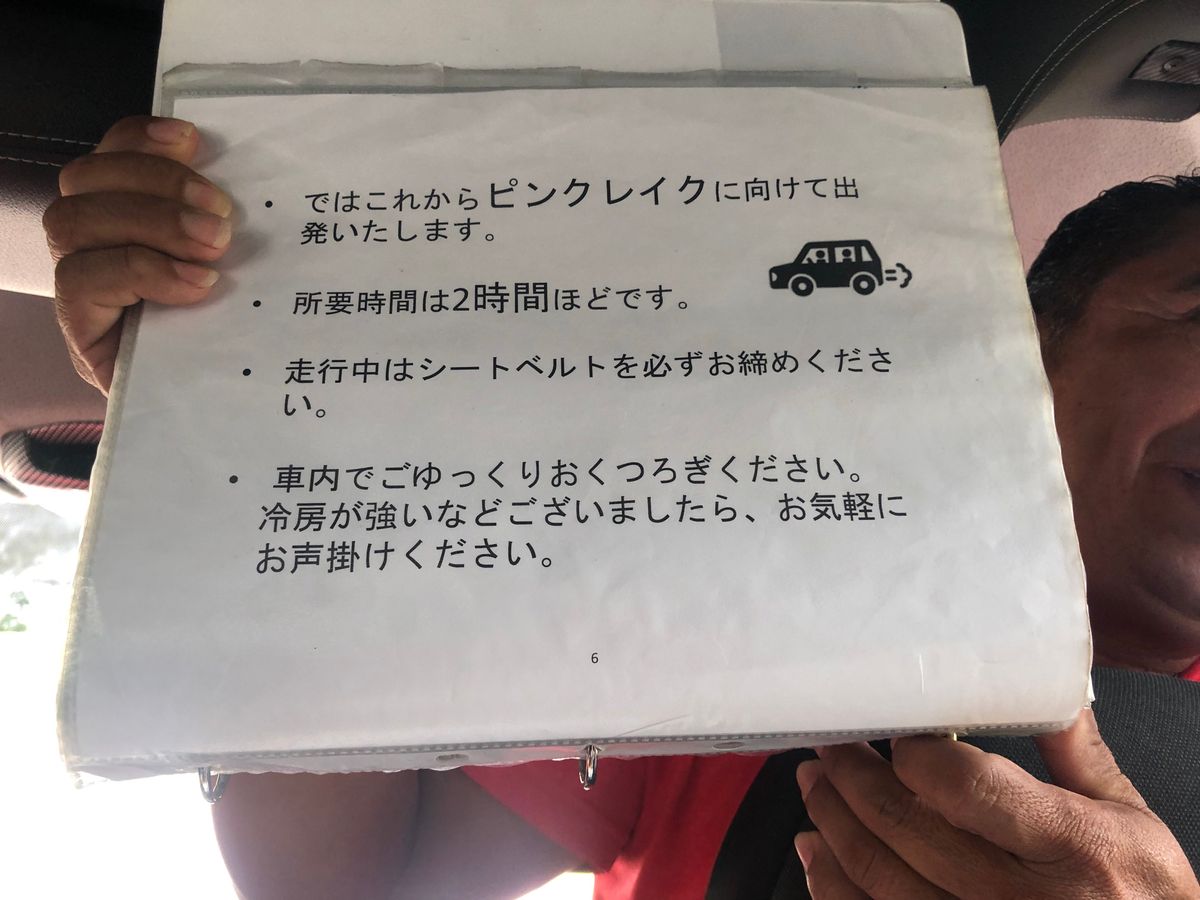 ・ ではこれからピンクレイクに向けて出
発いたします。
・ 所要時間は2時間ほどです。
・ 走行中はシートベルトを必ずお締めくださ
い。
・ 車内でごゆっくりおくつろぎください。
冷房が強いなどございましたら、お気軽に
お声掛けください。
6